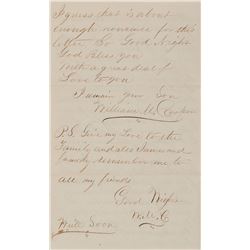 I guess that is about
enough nonsense for this
letter So Good Night
God bless you
With a great deal of
Love to you
I remain your Son
William M.
P.S. Give my Love to the
Family and also
Family remember me to
all my friends
Good Night
Will C
Write Soon